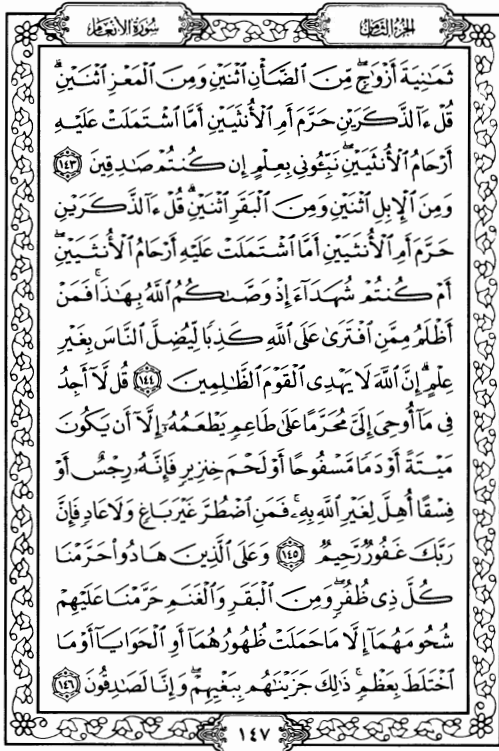 سُورَةُ الأَنعَامِ
الجُزْءُ الثَّامِنُ
ثَمَٰنِيَةَ أَزْوَٰجٍۖ مِّنَ ٱلضَّأْنِ ٱثْنَيْنِ وَمِنَ ٱلْمَعْزِ ٱثْنَيْنِۗ
قُلْ ءَآلذَّكَرَيْنِ حَرَّمَ أَمِ ٱلْأُنثَيَيْنِ أَمَّا ٱشْتَمَلَتْ عَلَيْهِ
أَرْحَامُ ٱلْأُنثَيَيْنِۖ نَبِّـُٔونِى بِعِلْمٍ إِن كُنتُمْ صَٰدِقِينَ ١٤٣
وَمِنَ ٱلْإِبِلِ ٱثْنَيْنِ وَمِنَ ٱلْبَقَرِ ٱثْنَيْنِۗ قُلْ ءَآلذَّكَرَيْنِ
حَرَّمَ أَمِ ٱلْأُنثَيَيْنِ أَمَّا ٱشْتَمَلَتْ عَلَيْهِ أَرْحَامُ ٱلْأُنثَيَيْنِۖ
أَمْ كُنتُمْ شُهَدَآءَ إِذْ وَصَّىٰكُمُ ٱللَّهُ بِهَٰذَاۚ فَمَنْ
أَظْلَمُ مِمَّنِ ٱفْتَرَىٰ عَلَى ٱللَّهِ كَذِبًا لِّيُضِلَّ ٱلنَّاسَ بِغَيْرِ
عِلْمٍۗ إِنَّ ٱللَّهَ لَا يَهْدِى ٱلْقَوْمَ ٱلظَّٰلِمِينَ ١٤٤ قُل لَّآ أَجِدُ
فِى مَآ أُوحِىَ إِلَىَّ مُحَرَّمًا عَلَىٰ طَاعِمٍ يَطْعَمُهُۥٓ إِلَّآ أَن يَكُونَ
مَيْتَةً أَوْ دَمًا مَّسْفُوحًا أَوْ لَحْمَ خِنزِيرٍ فَإِنَّهُۥ رِجْسٌ أَوْ
فِسْقًا أُهِلَّ لِغَيْرِ ٱللَّهِ بِهِۦۚ فَمَنِ ٱضْطُرَّ غَيْرَ بَاغٍ وَلَا عَادٍ فَإِنَّ
رَبَّكَ غَفُورٌ رَّحِيمٌ ١٤٥ وَعَلَى ٱلَّذِينَ هَادُوا۟ حَرَّمْنَا
كُلَّ ذِى ظُفُرٍۖ وَمِنَ ٱلْبَقَرِ وَٱلْغَنَمِ حَرَّمْنَا عَلَيْهِمْ
شُحُومَهُمَآ إِلَّا مَا حَمَلَتْ ظُهُورُهُمَآ أَوِ ٱلْحَوَايَآ أَوْ مَا
ٱخْتَلَطَ بِعَظْمٍۚ ذَٰلِكَ جَزَيْنَٰهُم بِبَغْيِهِمْۖ وَإِنَّا لَصَٰدِقُونَ ١٤٦
١٤٧